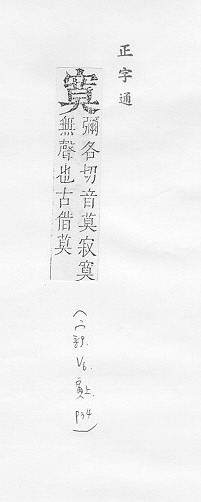 正字通
彌各切音莫寂寞
無聲也古借莫
V6.
寅上.
p34)